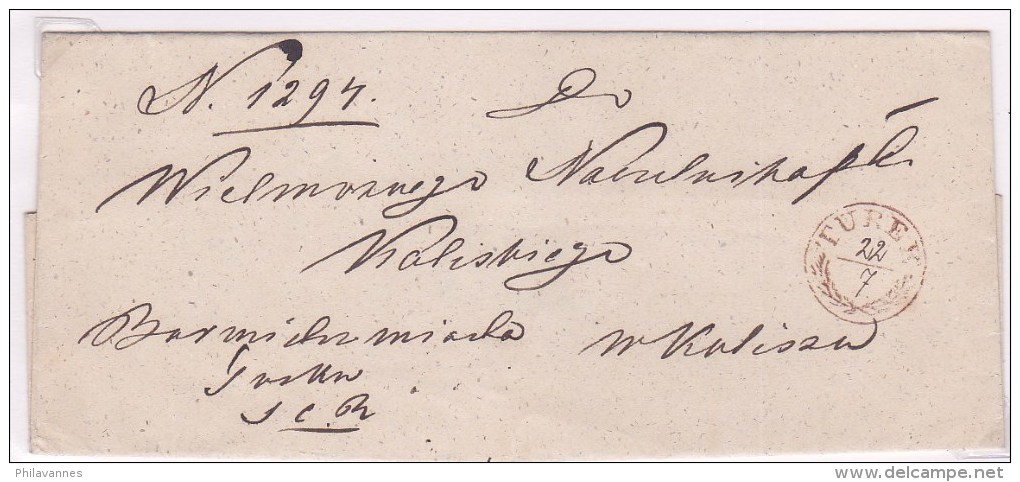 N. 1294. Do
Wielmożnego Naczelnika
Kaliskiego
TUREK
22
7
Burmistrz miasta w Kaliszu
Turku
Philavannes
www.delcampe.net